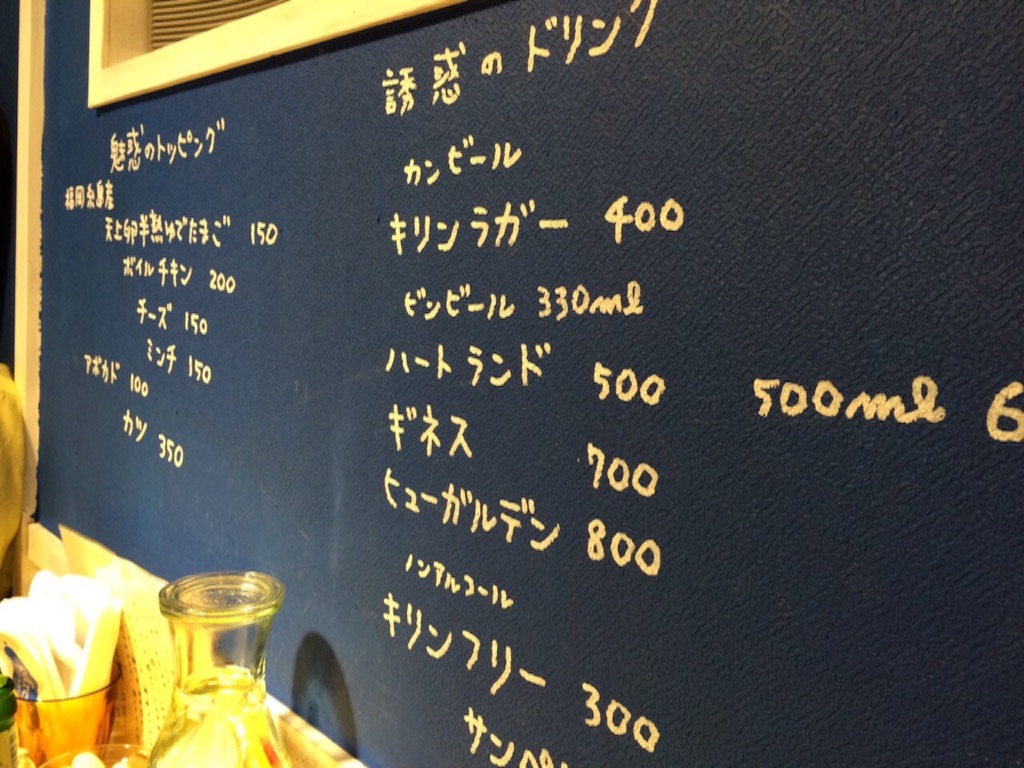 魅惑のトッピング
福岡糸島産
天上卵半熟ゆでたまご 150
ボイルチキン 200
チーズ 150
ミンチ 150
アボカド 100
カツ 350
誘惑のドリンク
カンビール
キリンラガー 400
ビンビール 330ml
ハートランド 500 500ml 6
ギネス 700
ヒューガルデン 800
ノンアルコール
キリンフリー 300
サンペ